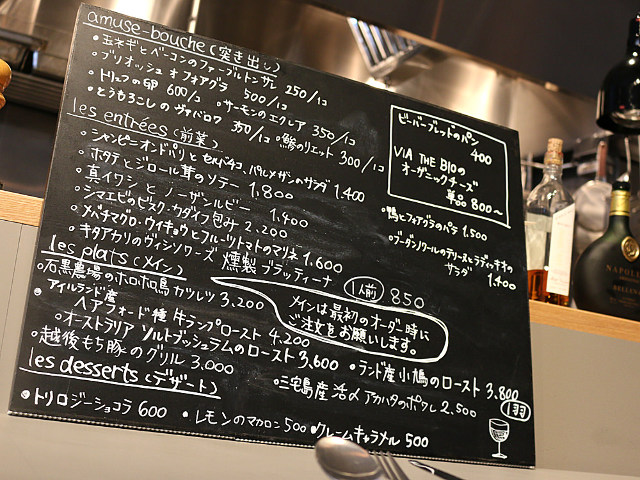 amuse-bouche (突き出し)
・玉ネギとベーコンのファーブルトンサレ 250/1コ
・ブリオッシュ オ フォアグラ 500/1コ
・トリュフのGP 600/コ ・サーモンのエクレア 350/1コ
・とうもろこしのヴァバロワ 350/1コ ・鰺のリエット 300/1コ
les entrées (前菜)
・シャンピニオンドパリとセルバチコ、パルメザンのサラダ 1,400
・ホタテとジロール茸のソテー 1,800
・真イワシとノーザンルビー 1,400
・シマエビのビスク・カダイフ包み 2,200
・メバチマグロ・ウイキョウとフルーツトマトのマリネ 1,600
・キタアカリのヴィシソワーズ 燻製ブラッティーナ 1人前 850
ビーバーブレッドのパン
400
ViA THE BIOの
オーガニックチーズ
単品 800〜
・鴨とフォアグラのパテ 1,500
・ブーダンノワールのテリーヌとラディッキオの
サラダ 1,400
les plats (メイン)
・石黒農場のホロホロ鳥カツレツ 3,200
・アイルランド産
ヘアフォード種 牛ランプロースト 4,200
・オーストラリア ソルトブッシュラムのロースト 3,600
・越後もち豚のグリル 3,000
メインは最初のオーダー時に
ご注文をお願いします。
・ランド産小鳩のロースト 3,800
1羽
・三宅島産 活〆アカハタのポワレ 2,500
les desserts (デザート)
・トリロジーショコラ 600 ・レモンのマカロン 500 ・クレームキャラメル 500
NAPOLÉON